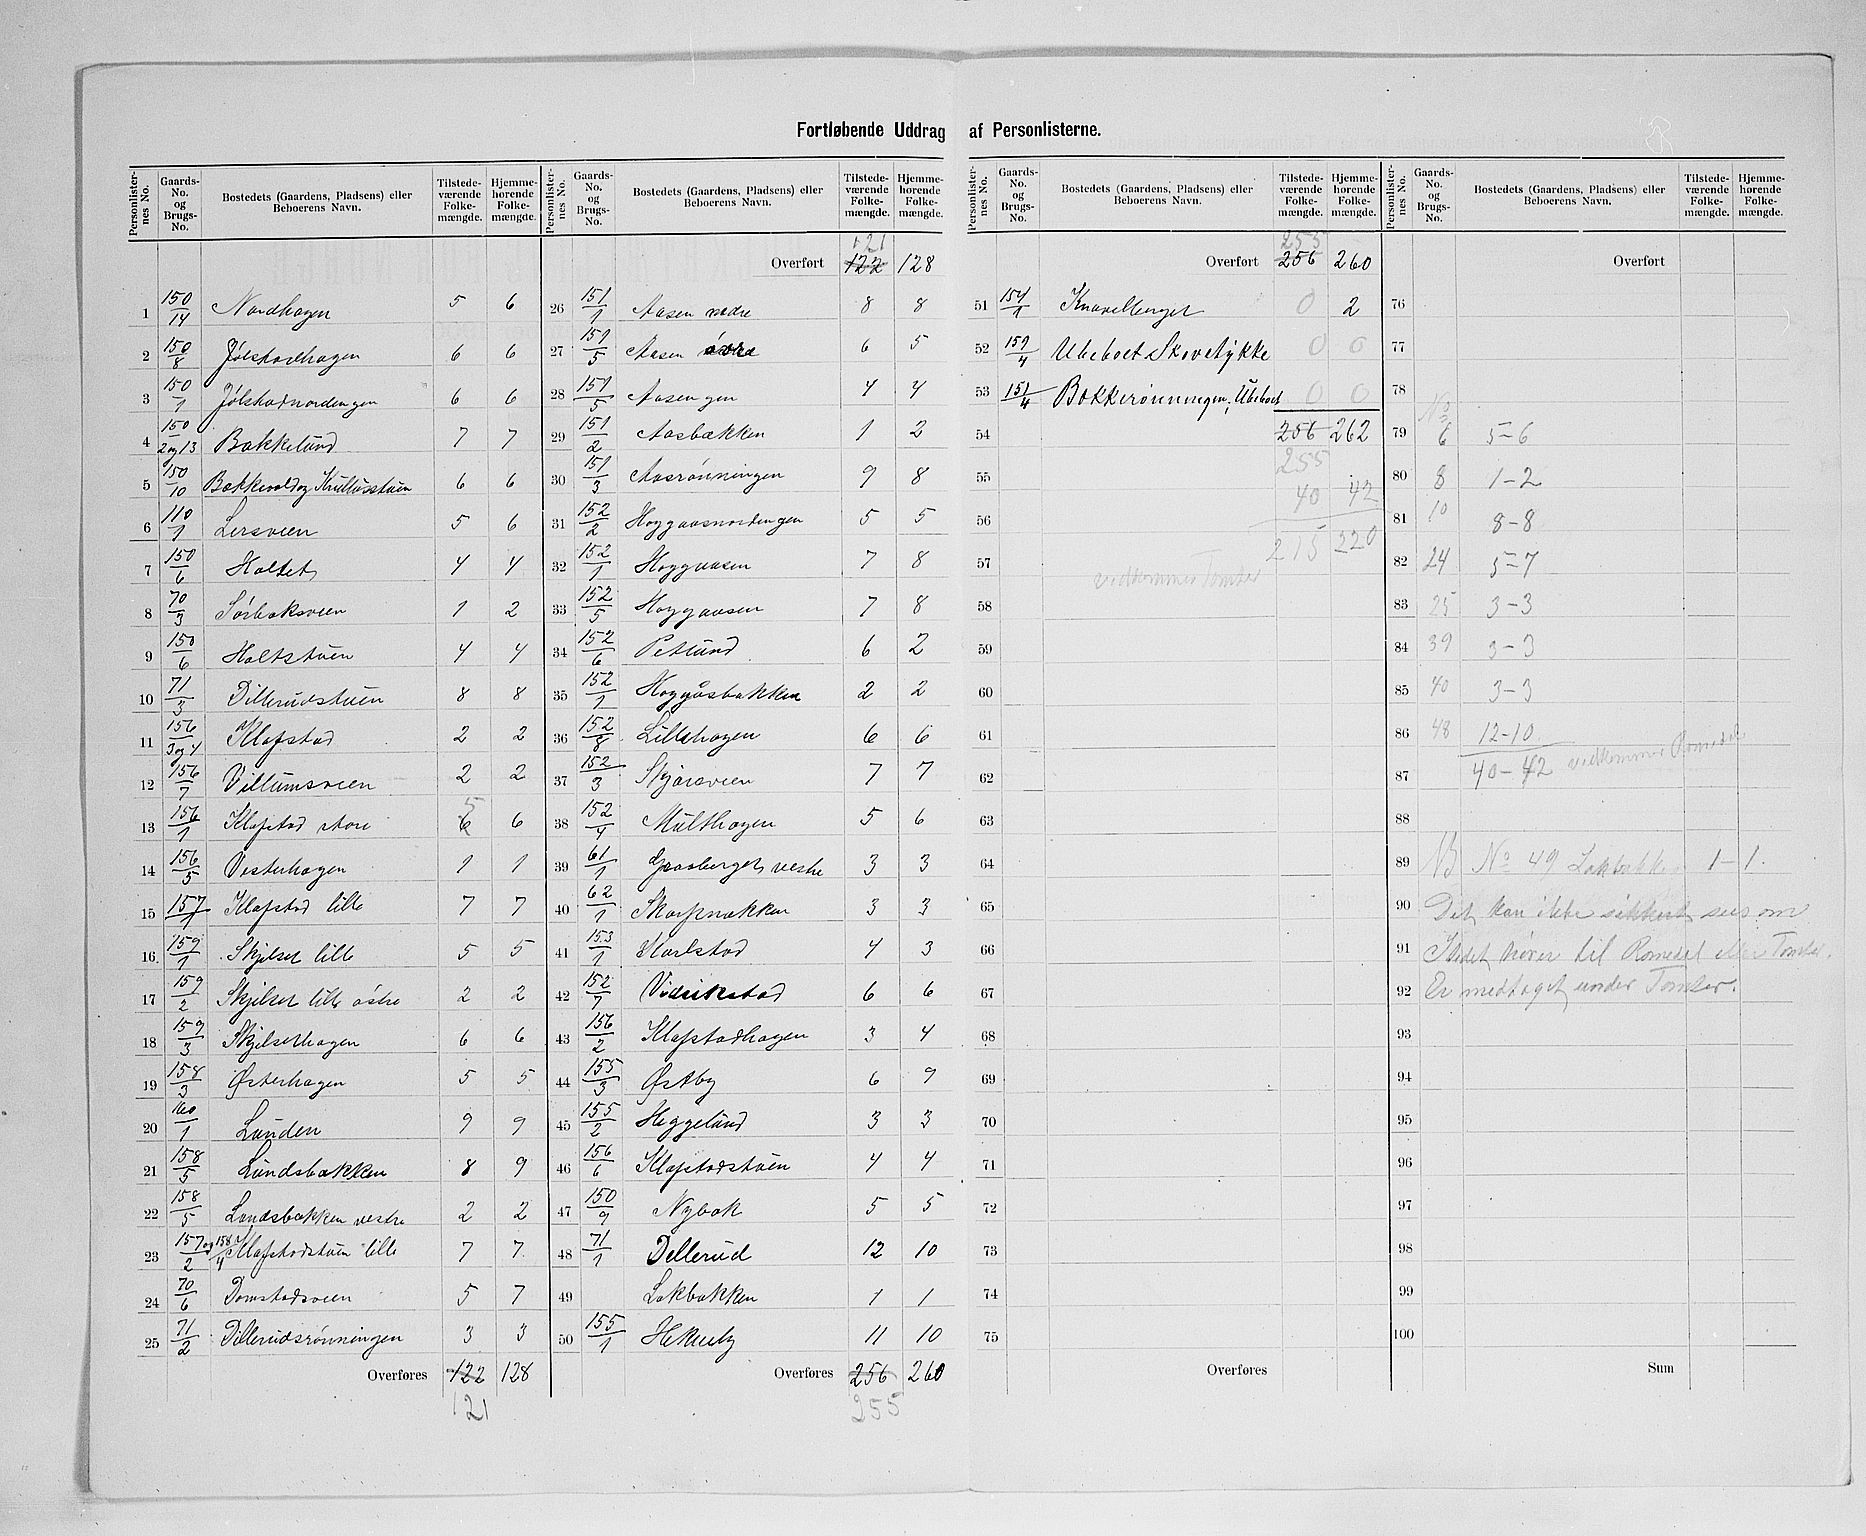 Fortløbende Uddrag af Personlisterne.
Personlisternes No. Gaards-No. og Brugs-No. Bostedets (Gaardens, Pladsens) eller Beboerens Navn. Tilstedeværende Folkemængde. Hjemmehørende Folkemængde.
1 150/14 Nordhagen 5 6
2 150/8 Jølstadhagen 6 6
3 150/1 Jølstadnordengen 6 6
4 150/2 og 13 Bakkelund 7 7
5 150/10 Bakkevold og Knutlusstuen 6 6
6 110/1 Lersveen 5 6
7 150/6 Holtet 4 4
8 70/3 Sørbaksveen 1 2
9 150/6 Holtstuen 4 4
10 71/3 Dillerudstuen 8 8
11 156/3 og 4 Klafstad 2 2
12 156/7 Villumsveen 2 2
13 156/1 Klafstad store 6 5 6
14 156/5 Vesterhagen 1 1
15 157/1 Klafstad lille 7 7
16 159/1 Skjelset lille 5 5
17 159/2 Skjelset lille østre 2 2
18 159/3 Skjelsethagen 6 6
19 158/3 Østerhagen 5 5
20 160/1 Lunden 9 9
21 158/5 Lundsbakken 8 9
22 158/5 Lundsbakken vestre 2 2
23 157/2 og 158/4 Klafstadstuen lille 7 7
24 70/6 Domstadsveen 5 7
25 71/2 Dillerudsrønningen 3 3
Overføres 122 128
121
Personlisternes No. Gaards-No. og Brugs-No. Bostedets (Gaardens, Pladsens) eller Beboerens Navn. Tilstedeværende Folkemængde. Hjemmehørende Folkemængde.
121
Overført 122 128
26 151/1 Aasen nedre 8 8
27 151/5 Aasen øvre 6 5
28 151/5 Aasengen 4 4
29 151/2 Aasbækken 1 2
30 151/3 Aasrønningen 9 8
31 152/2 Hoggaasnordengen 5 5
32 152/1 Hoggaasen 7 8
33 152/5 Hoggaasen 7 8
34 152/6 Petlund 6 2
35 152/1 Hoggåsbakken 2 2
36 152/8 Lillehagen 6 6
37 152/3 Skjørsveen 7 7
38 152/4 Multhagen 5 6
39 61/1 Graaberget vestre 3 3
40 62/1 Skarpnakken 3 3
41 153/1 Karlstad 4 3
42 152/7 Vidrikstad 6 6
43 156/2 Klafstadhagen 3 4
44 155/3 Østby 6 9
45 155/2 Heggelund 3 3
46 156/6 Klafstadstuen 4 4
47 150/9 Nybak 5 5
48 71/1 Dellerud 12 10
49 Lakbakken 1 1
50 155/1 Hekneby 11 10
Overføres 256 260
255
Personlisternes No. Gaards-No. og Brugs-No. Bostedets (Gaardens, Pladsens) eller Beboerens Navn. Tilstedeværende Folkemængde. Hjemmehørende Folkemængde.
255
Overført 256 260
51 154/1 Knavelberget 0 2
52 159/4 Ubeboet Skovstykke 0 0
53 151/4 Bakkerønningen, Ubeboet 0 0
54 256 262
255
55
40 42
56
215 220
57
vedkommer Tomter
58
59
60
61
62
63
64
65
66
67
68
69
70
71
72
73
74
75
Overføres
Personlisternes No. Gaards-No. og Brugs-No. Bostedets (Gaardens, Pladsens) eller Beboerens Navn. Tilstedeværende Folkemængde. Hjemmehørende Folkemængde.
Overført
76
77
78
No
79 6 5-6
80 8 1-2
81 10 8-8
82 24 5-7
83 25 3-3
84 39 3-3
85 40 3-3
86 48 12-10
87 40-42 vedkommer Romedal
88
89 NB No 49 Lakbakken 1-1.
90 Det kan ikke sikkert sees om
91 Stedet hører til Romedal eller Tomter.
92 Er medtaget under Tomter.
93
94
95
96
97
98
99
100
Sum